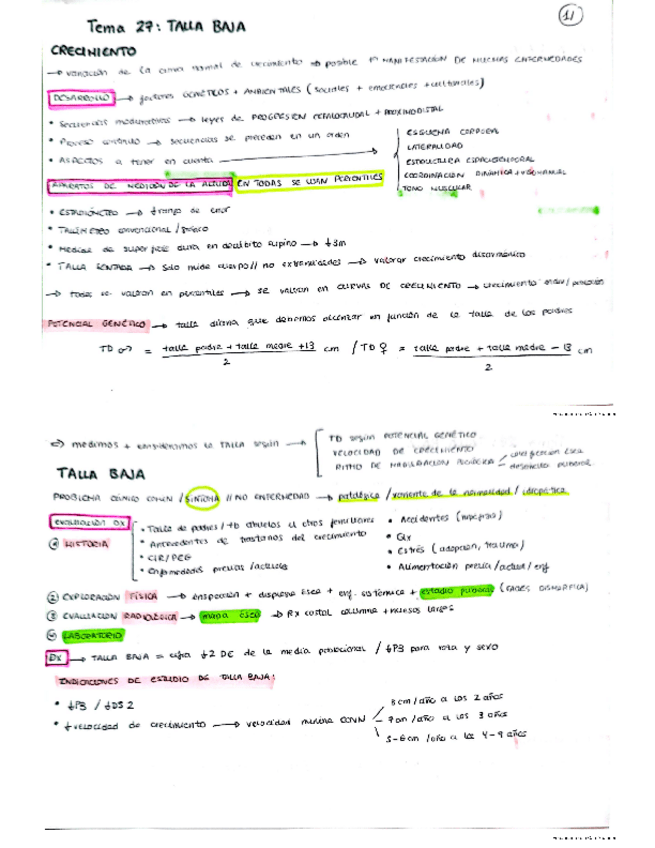 11
Tema 27: TALLA BAJA
CRECIMIENTO
→ variación de la curva normal de crecimiento → posible 1ª MANIFESTACIÓN DE MUCHAS ENFERMEDADES
DESARROLLO → factores GENÉTICOS + AMBIENTALES (sociales + emocionales + culturales)
• Secuencias madurativas → leyes de PROGRESIÓN CEFALOCAUDAL + PROXIMODISTAL
• Proceso continuo → secuencias se preceden en un orden
• ASPECTOS a tener en cuenta →
ESQUEMA CORPORAL
LATERALIDAD
ESTRUCTURA ESPACIOTEMPORAL
COORDINACIÓN DINÁMICA + VISOMANUAL
TONO MUSCULAR
APARATOS DE MEDICIÓN DE LA ALTURA EN TODAS SE USAN PERCENTILES
• ESTADIÓMETRO → ↓rango de error
• TALLÍMETRO convencional /
• Medidas de superficie dura en decúbito supino → ↓3m
• TALLA SENTADA → solo mide cuerpo // no extremidades → valorar crecimiento disarmónico
→ todas se valoran en percentiles → se valoran en CURVAS DE CRECIMIENTO → crecimiento
POTENCIAL GENÉTICO → talla diana que debemos alcanzar en función de la talla de los padres
TD ♂ = talla padre + talla madre +13 / 2 cm / TD ♀ = talla padre + talla madre - 13 / 2 cm
⇒ medimos + consideramos la TALLA según →
TD según POTENCIAL GENÉTICO
VELOCIDAD DE CRECIMIENTO
RITMO DE MADURACIÓN BIOLÓGICA
calcificación ósea
desarrollo puberal
TALLA BAJA
PROBLEMA CLÍNICO COMÚN / SÍNTOMA // NO ENFERMEDAD → patológica / variante de la normalidad / idiopática
EVALUACIÓN DX
① HISTORIA
• Talla de padres / tb abuelos u otros familiares
• Antecedentes de trastornos del crecimiento
• CIR/PEG
• Enfermedades previas /actuales
• Accidentes
• Qx
• Estrés (adopción, trauma)
• Alimentación previa /actual / enf
② EXPLORACIÓN FÍSICA → inspección + displasia ósea + enf. sistémica + estadio puberal (FACIES DISMÓRFICA)
③ EVALUACIÓN RADIOLÓGICA → mapa óseo → Rx costal columna + huesos largos
④ LABORATORIO
DX → TALLA BAJA = cifra ↓2 DE de la media poblacional / ↓P3 para raza y sexo
INDICACIONES DE ESTUDIO DE TALLA BAJA:
• ↓P3 / ↓DS 2
• ↓velocidad de crecimiento → velocidad mínima
8 cm /año a los 2 años
7 cm /año a los 3 años
5-6 cm /año a los 4-9 años